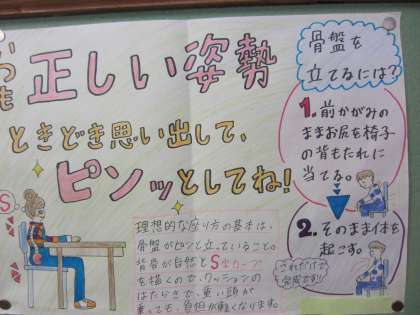 いつも
正しい姿勢
ときどき思い出して、
ピンッとしてね!
S
骨盤を
立てるには?
1. 前かがみの
ままお尻を椅子
の背もたれに
当てる。
2. そのまま体を
起こす。
これだけで
完成です!!
理想的な座り方の基本は、
骨盤がピンと立っていること。
背骨が自然とS字カーブ
を描くので、クッションの
はたらきで、重い頭が
乗っても、負担が軽くなります。